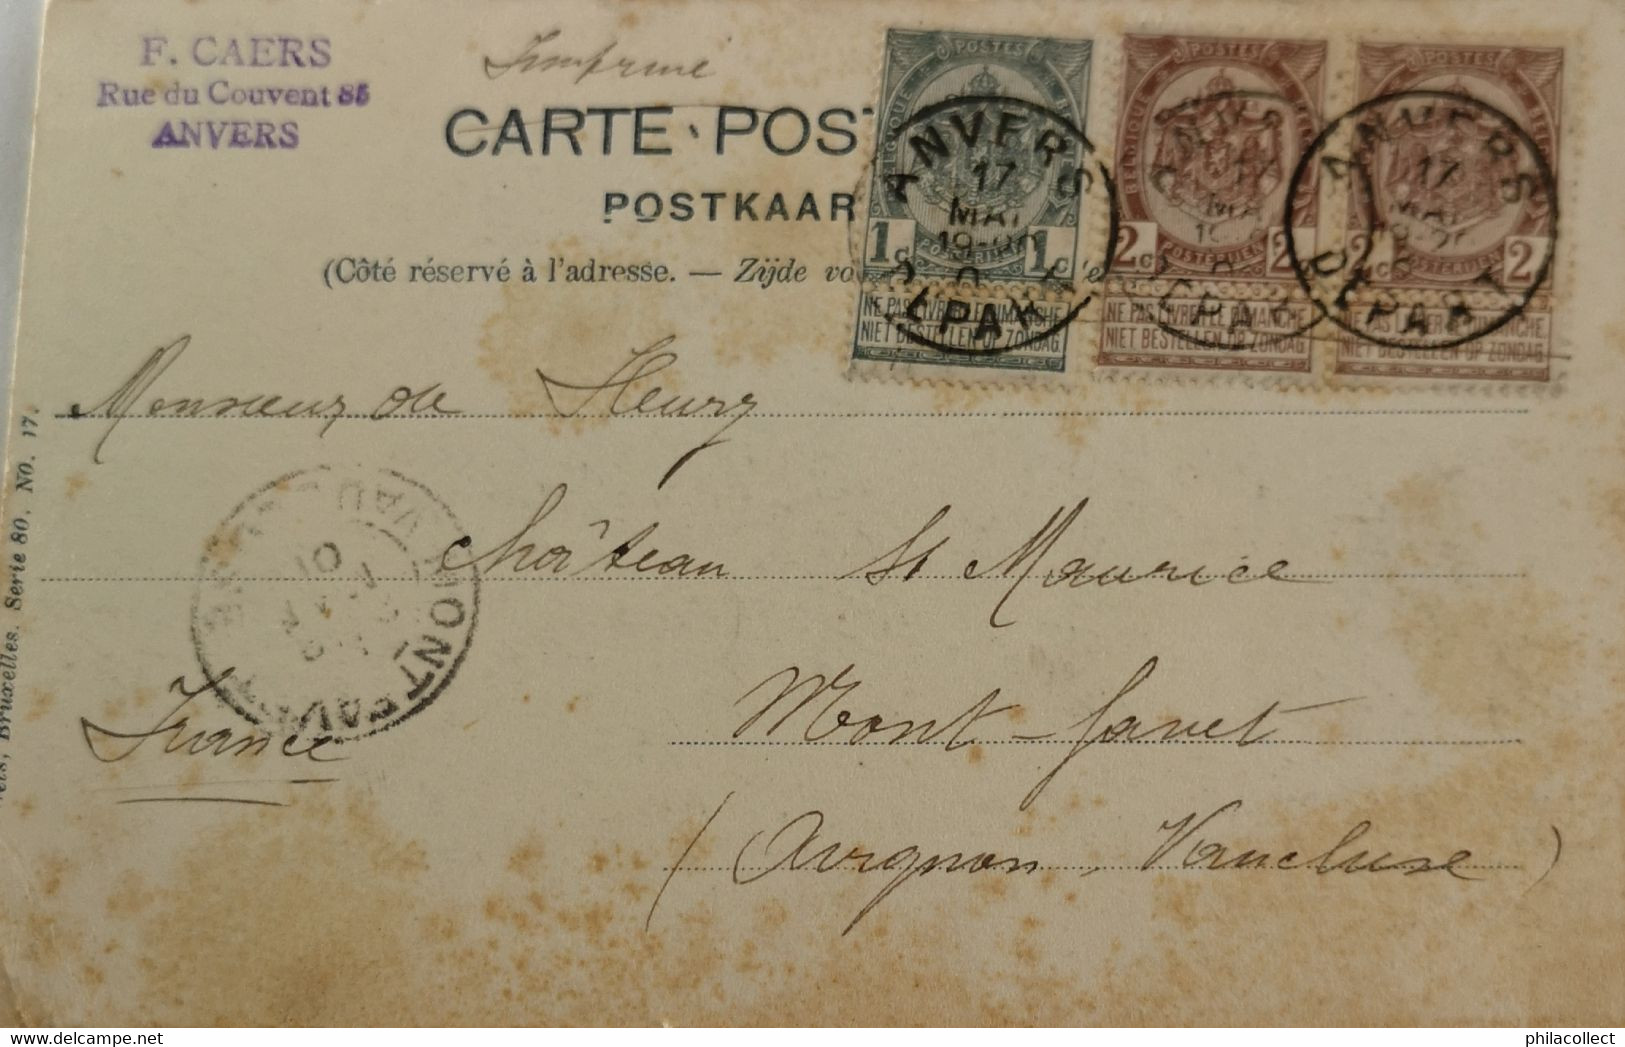 F. CAERS
Rue du Couvent 85
ANVERS
Imprimé
CARTE POST
POSTKAAR
(Côté réservé à l'adresse. — Zijde vo
POSTES
BELGIQUE
1c 1c
POSTERIJEN
NE PAS LIVRER LE DIMANCHE
NIET BESTELLEN OP ZONDAG
POSTES
BELGIQUE BELGIE
2c 2c
POSTERIJEN
NE PAS LIVRER LE DIMANCHE
NIET BESTELLEN OP ZONDAG
POSTES
2c 2
POSTERIJEN
NE PAS LIVRER LE DIMANCHE
NIET BESTELLEN OP ZONDAG
ANVERS
17
MAI
19-20
DEPART
ANVERS
17
MAI
DEPART
ANVERS
17
MAI
DEPART
Monsieur de Fleury
Château St Maurice
Mont-favet
(Avignon, Vaucluse)
France
MONTFAVET
Bruxelles. Serie 80. No. 17.
philacollect